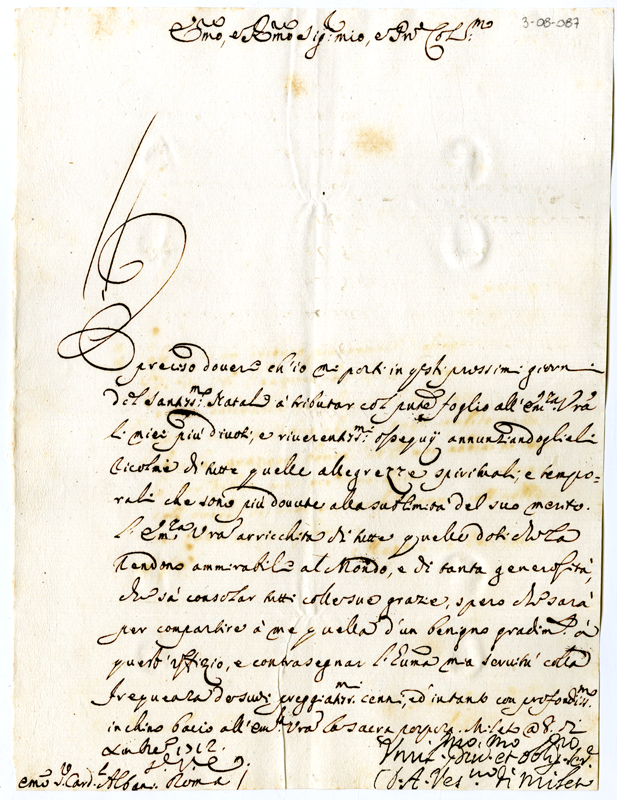 3-08-087
Em̃o, e R̃mo Sig.r mio, e Pñe Col.mo
È preciso dovere ch'io mi porti in q̃sti prossimi giorni
del Santiss.mo Natale à tributar col pñte foglio all'Em̃za Vr̃a
li miei più divoti, e riverentiss.mi ossequij annunziandoglieli
ricolmi di tutte quelle allegrezze spirituali, e tempo=
rali che sono più dovute alla sublimità del suo merito.
L'Em̃za Vr̃a arricchita di tutte quelle doti che la
rendono ammirabile al Mondo, e di tanta generosità,
che sà consolar tutti colle sue grazie, spero che sarà
per compartire à me quella d'un benigno gradim.to à
questo uffizio, e contrasegnar l'hum̃a mia servitù colla
frequenza de suoi preggiatis.mi cenni, ed intanto con profondiss.mo
inchino bacio all'Em̃za Vr̃a la sacra porpora. Mileto
Xmbre 1712.
Vmil.mo Dev.mo et oblig. Ser.
D. A. Ves.vo di Mileto
Em̃o S.r Card.l Albani Roma